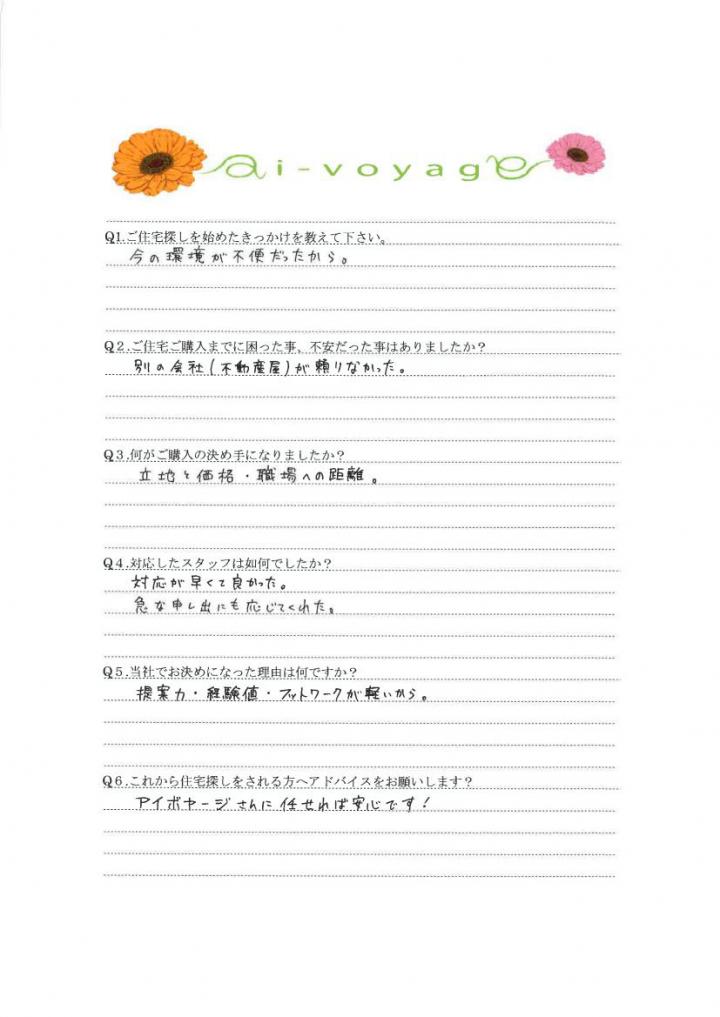 ai-voyage
Q1.ご住宅探しを始めたきっかけを教えて下さい。
今の環境が不便だったから。
Q2.ご住宅ご購入までに困った事、不安だった事はありましたか?
別の会社(不動産屋)が頼りなかった。
Q3.何がご購入の決め手になりましたか?
立地と価格・職場への距離。
Q4.対応したスタッフは如何でしたか?
対応が早くて良かった。
急な申し出にも応じてくれた。
Q5.当社でお決めになった理由は何ですか?
提案力・経験値・フットワークが軽いから。
Q6.これから住宅探しをされる方へアドバイスをお願いします?
アイボヤージさんに任せれば安心です!